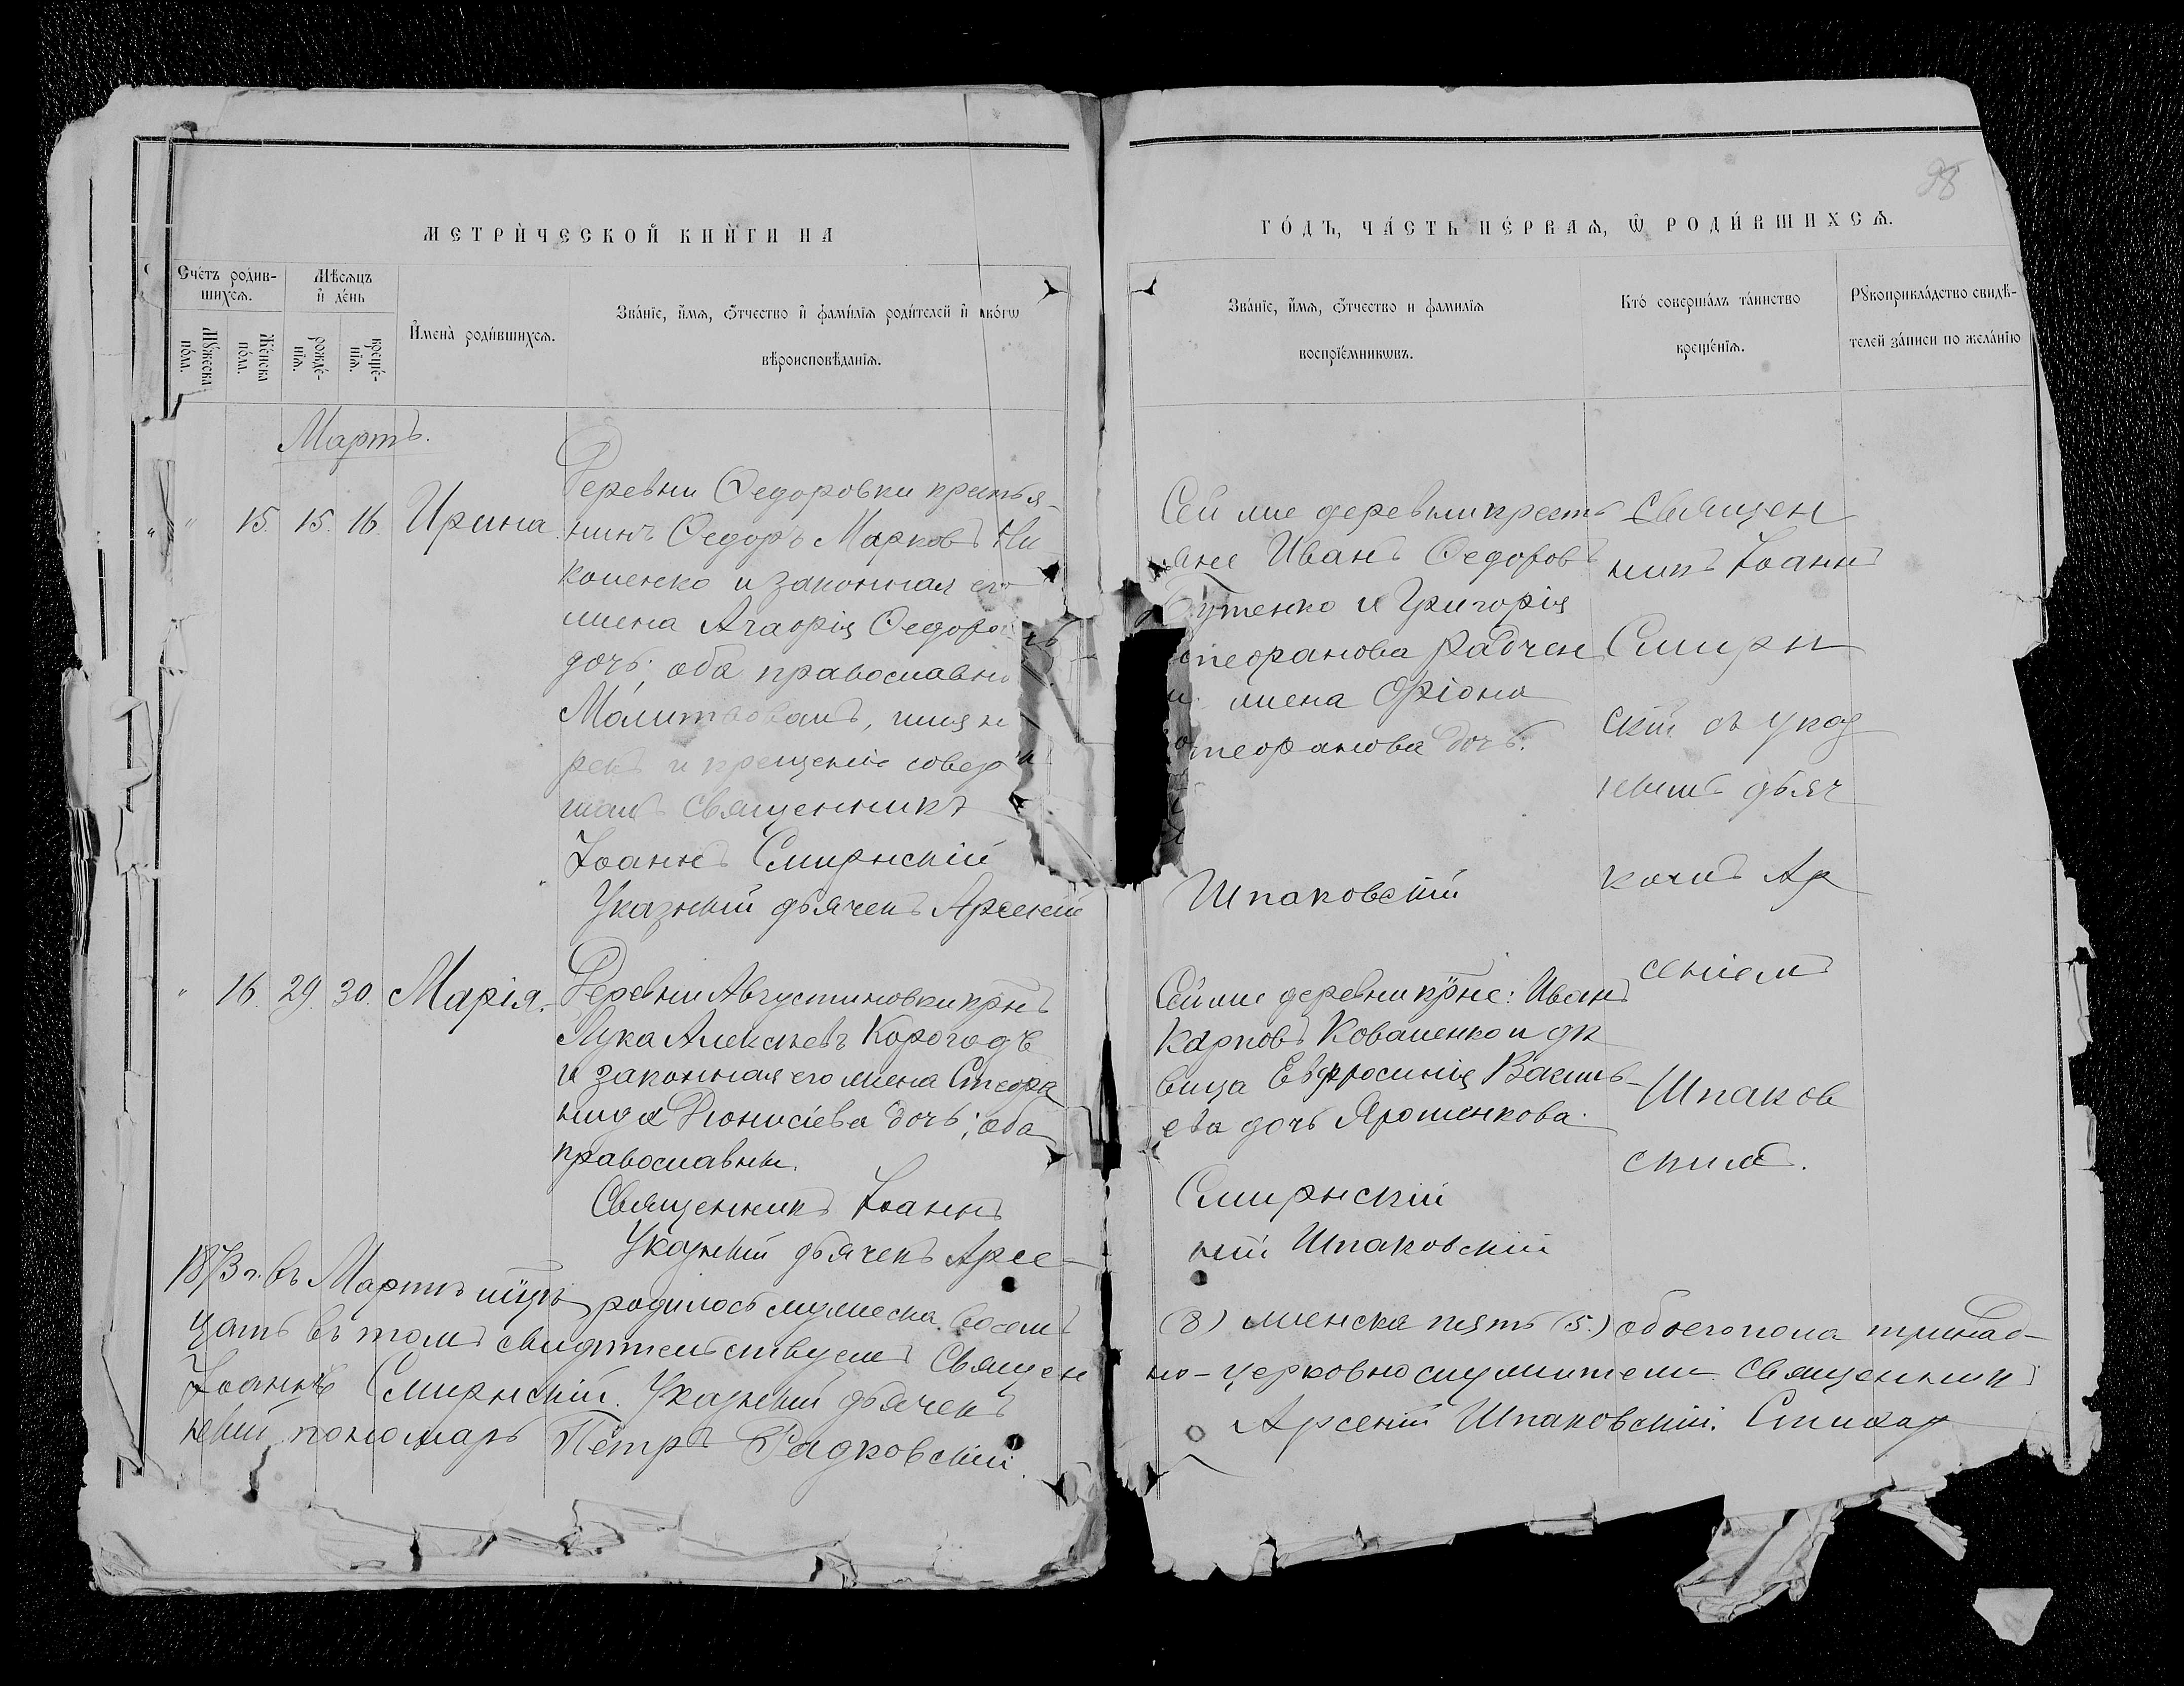 28
МЕТРИ́ЧЕСКОЙ КНИ́ГИ НА
ГО́ДЪ, ЧА́СТЬ ПЕ́РВАѦ, Ѽ РОДИ́ВШИХСѦ.
Сче́тъ роди́в-
шихсѧ.
Мѣ́сѧцъ
и҆ де́нь
И҆мена̀ роди́вшихсѧ.
Зва́нїе, и҆́мѧ, ѻ҆́тчество и҆ фами́лїѧ роди́телей и҆ како́гѡ
вѣроисповѣ́данїѧ.
Му́жеска
по́ла.
Же́нска
по́ла.
рожде́-
нїѧ.
креще́-
нїѧ.
Зва́нїе, и҆́мѧ, ѻ҆́тчество и фамилїѧ
воспрїе́мникѡвъ.
Кто́ соверша́лъ та́инство
креще́нїѧ.
Рꙋкоприкла́дство свидѣ́-
телей за́писи по жела́нїю
Мартъ.
" 15. 15. 16. Ирина
Деревни Ѳедоровки крестья-
нинъ Ѳедоръ Марковъ Ни
коненко и законная его
жена Ѳедоров
дочь; оба православны
Молитвовалъ, имя н
рекъ и крещеніе совер
шалъ Священникъ
Іоаннъ Смирнскій
Указный дьячекъ Арсеній
Сей же деревни кресть
яне Иванъ Ѳедоровъ
Бутенко и Григорія
Радчен
жена
дочь.
Шпаковскій
Священ
никъ Іоаннъ
Смирн
скій съ указ
нымъ дьяч
комъ Ар
сеніемъ
Шпаков
скимъ.
" 16. 29. 30. Марія.
Деревни Августиновки крнъ
Лука Алексѣевъ Корогодъ
и законная его жена Стефа
нида Діонисіева дочь; оба
православны.
Священникъ Іоаннъ
Указный дьячекъ Арсе-
Сей же деревни крне: Иванъ
Карповъ Коваленко и дѣ
вица Евфросинія Василь-
ева дочь Ярошенкова.
Смирнскій
ній Шпаковскій
1873 г. въ Мартѣ мцѣ родилось мужеска восемь (8) женска пять (5.) обоего пола тринад-
цать въ томъ свидѣтельствуемъ Священно-церковнослужители Священникъ
Іоаннъ Смирнскій. Указный дьячекъ Арсеній Шпаковскій. Стихар
ный пономарь Петръ Радковскій.